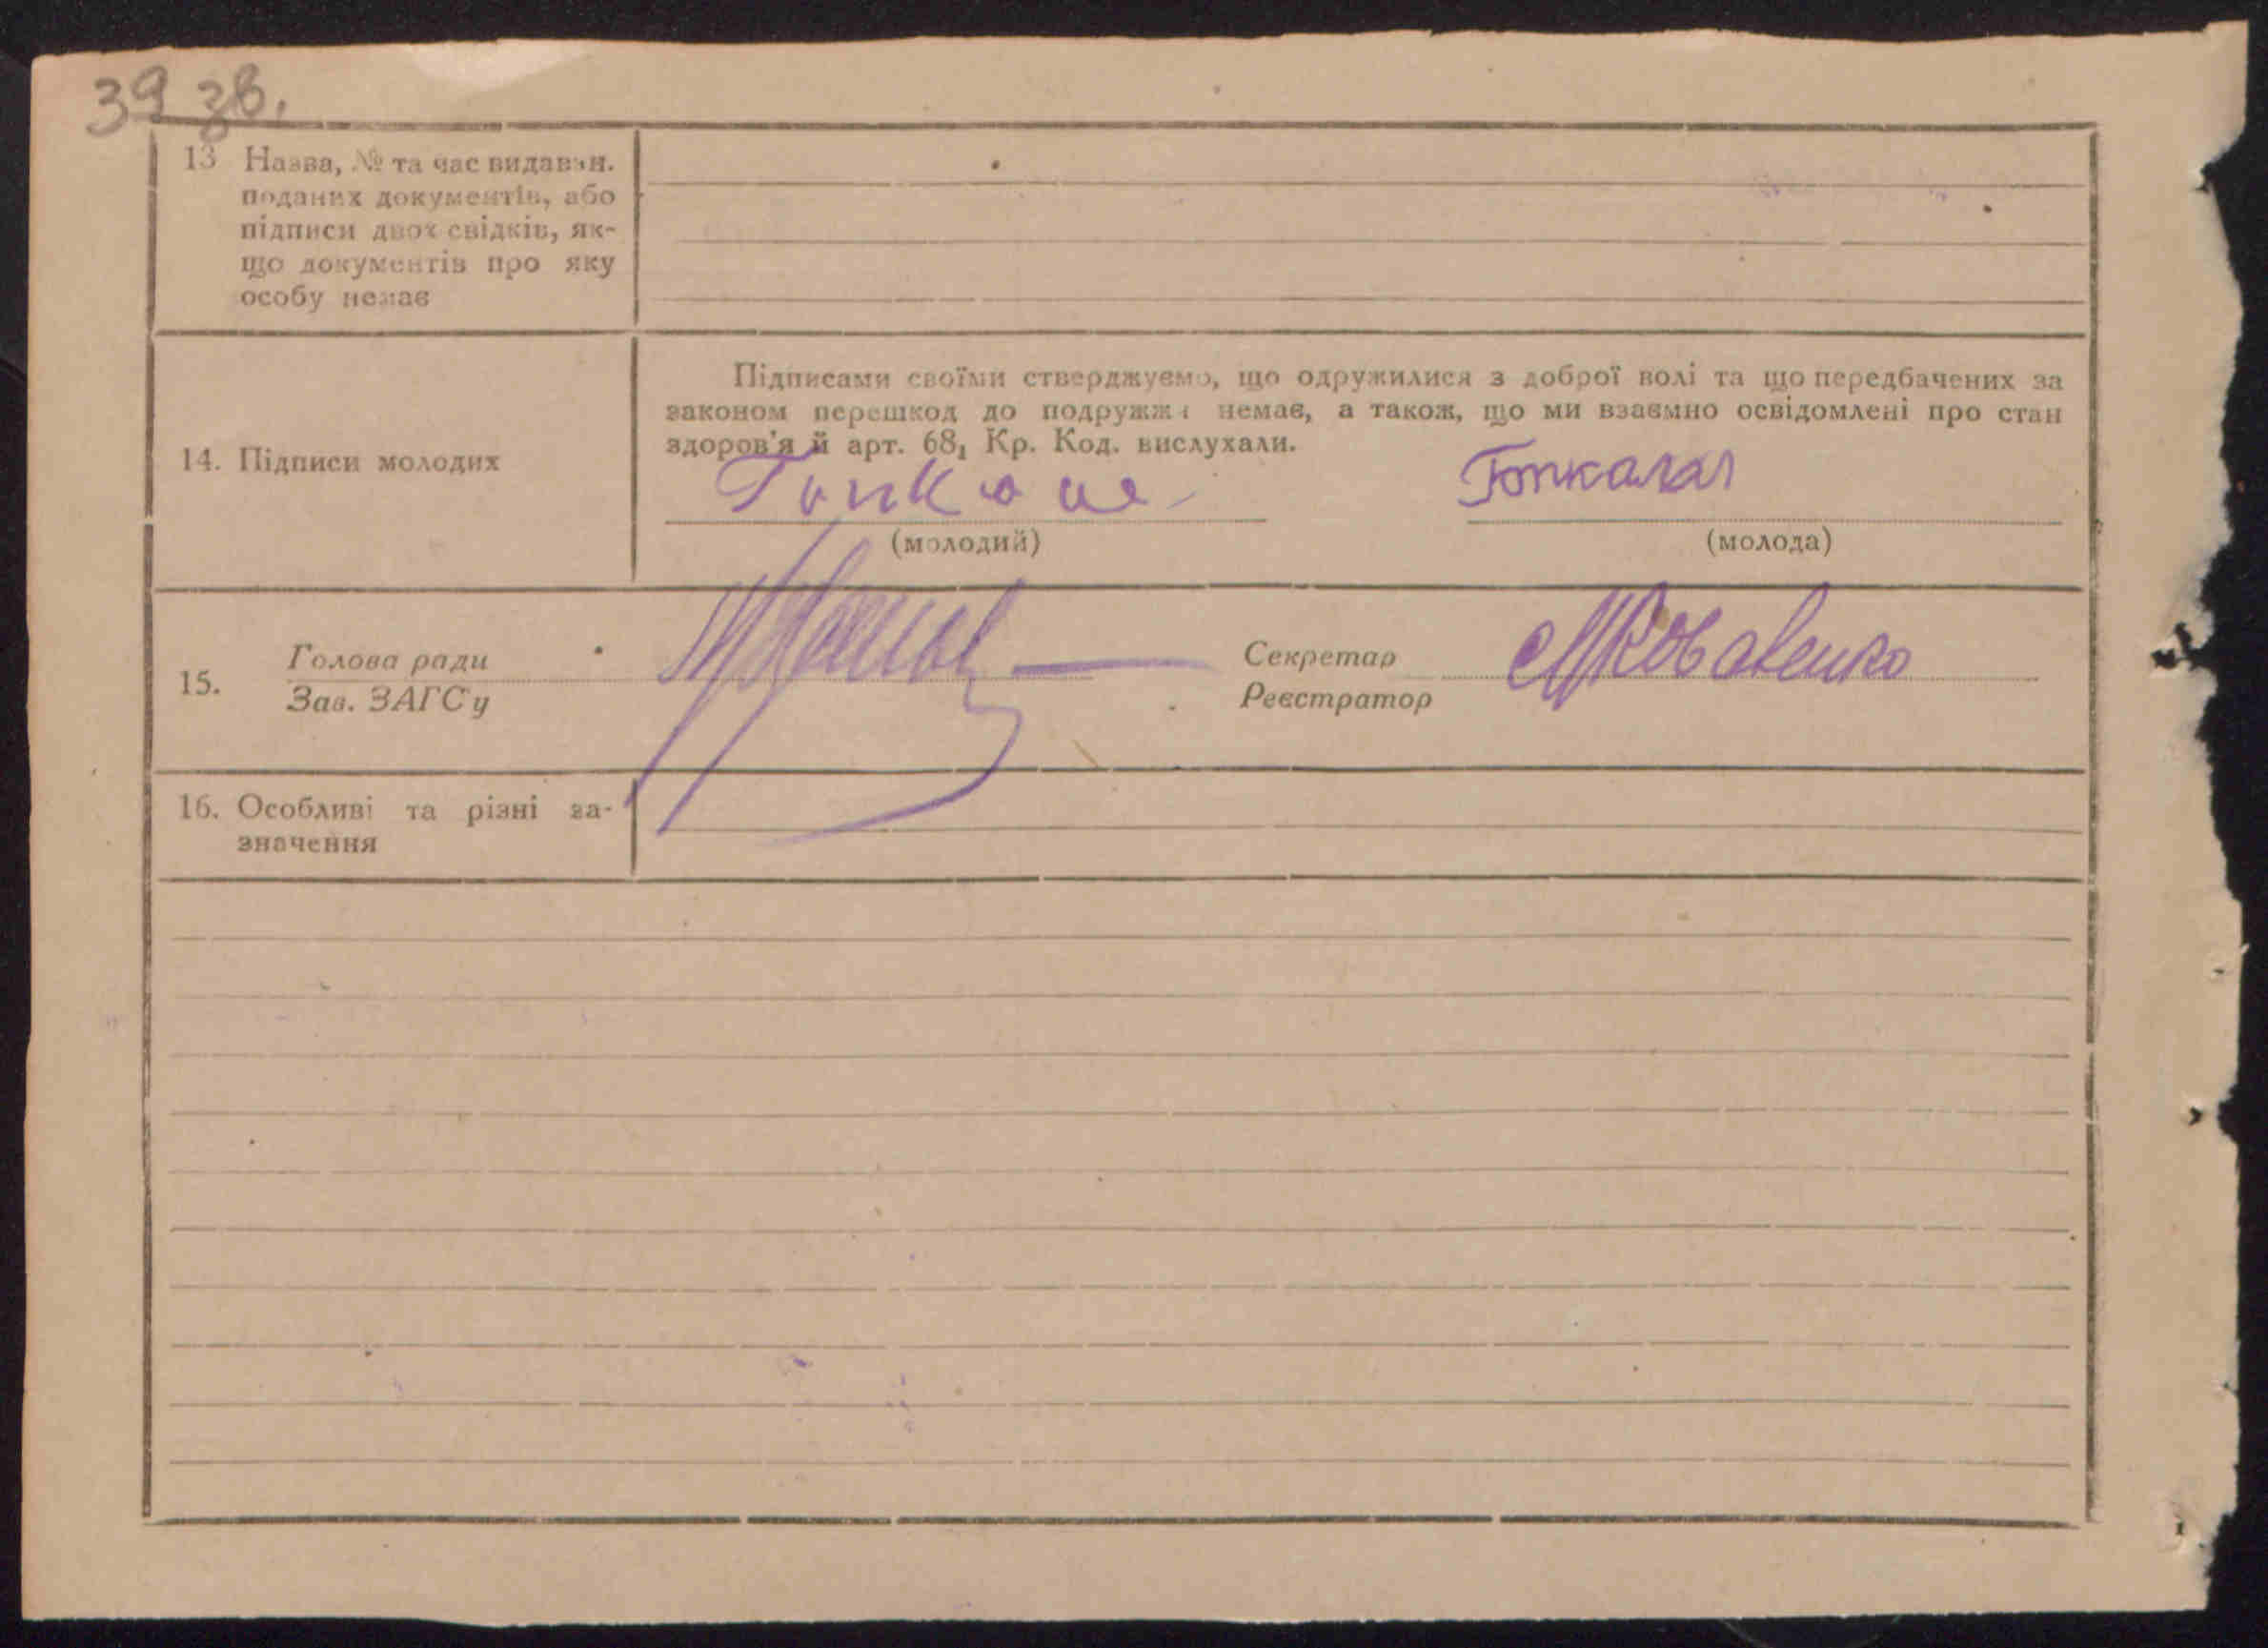 39 зв.
13 Назва, № та час видаван.
поданих документів, або
підписи двох свідків, як-
що документів про яку
особу немає
Підписами своїми стверджуємо, що одружилися з доброї волі та що передбачених за
законом перешкод до подружжя немає, а також, що ми взаємно освідомлені про стан
здоров'я й арт. 68, Кр. Код. вислухали.
14. Підписи молодих
(молодий) (молода)
15. Голова ради
Зав. ЗАГСу
Секретар МКоваленко
Реєстратор
16. Особливі та різні за-
значення